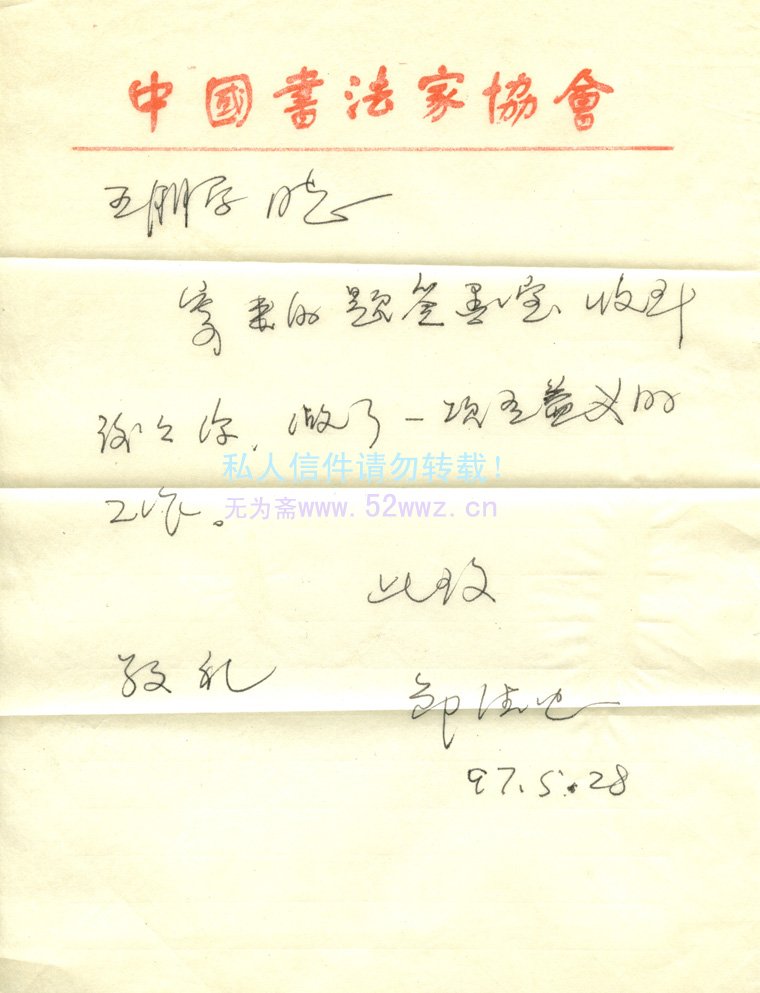 中國書法家協會
王朋学同志
寄来的题签墨宝收到
谢谢你,做了一项有益义的
私人信件请勿转载!
工作。
无为斋www.52wwz.cn
此致
敬礼
97.5.28